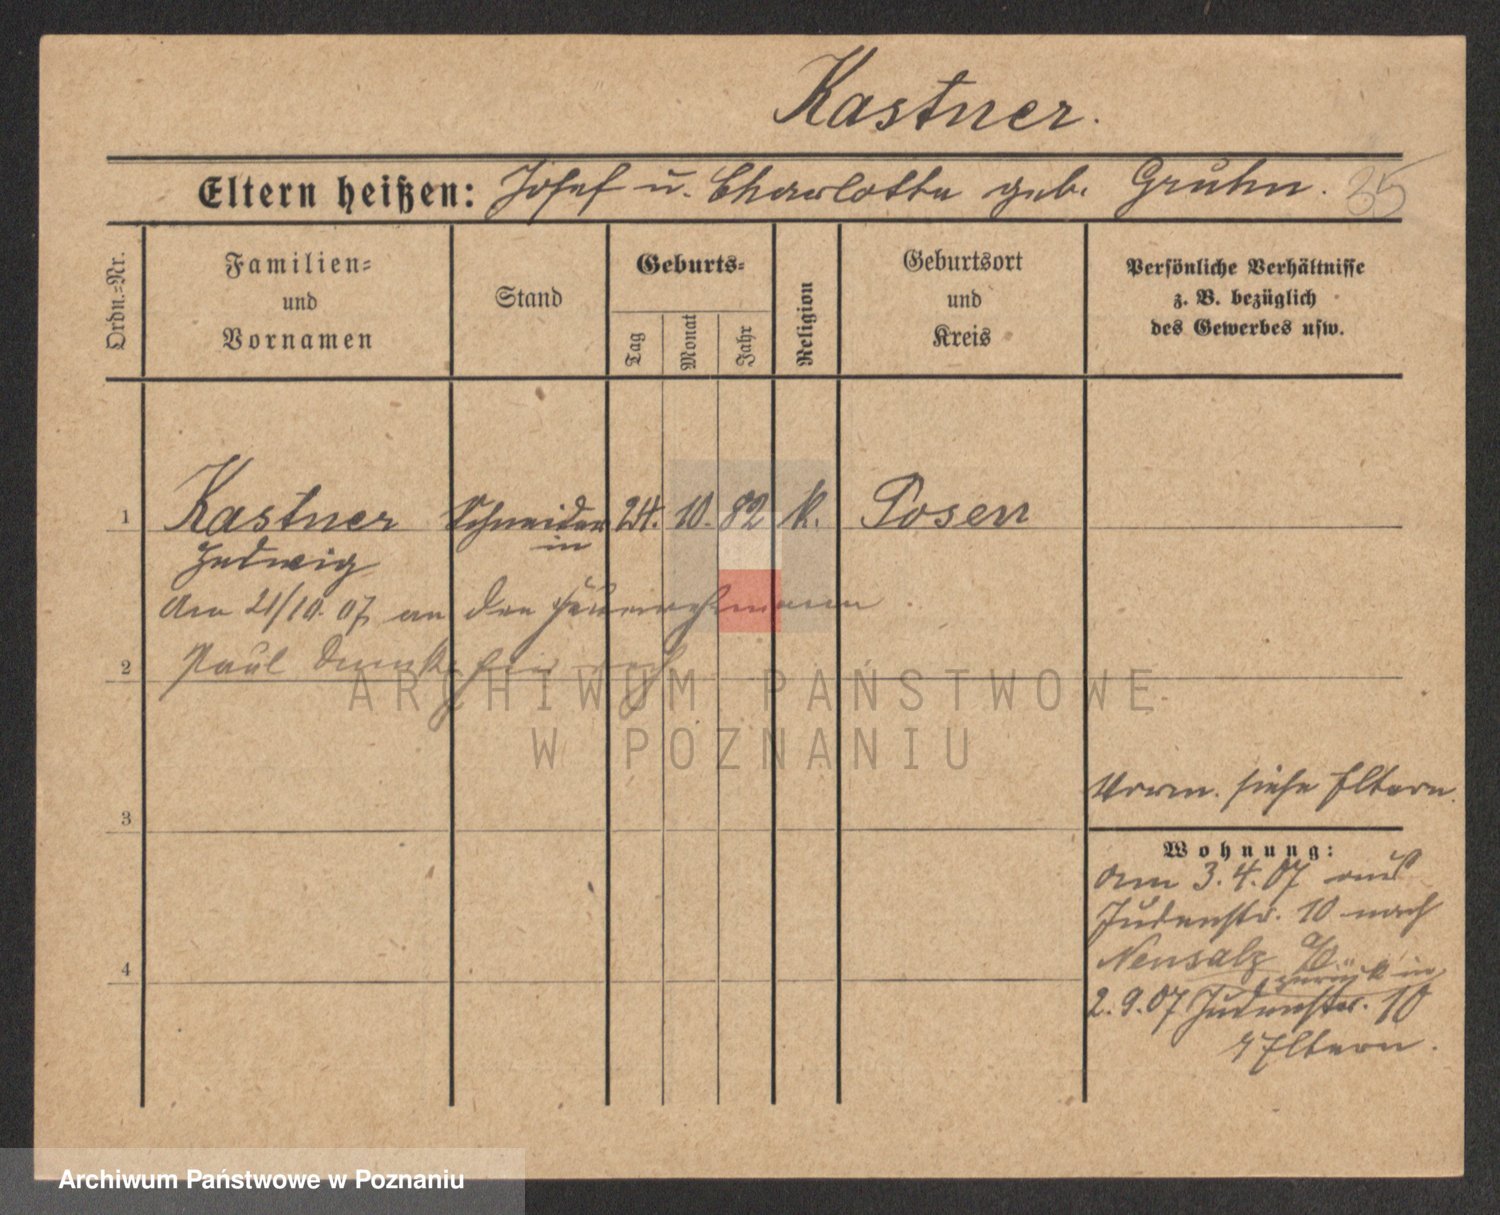 Kastner.
Eltern heißen: Josef u. Charlotte geb. Gruhn. 35
Ordn.=Nr.
Familien=
und
Vornamen
Stand
Geburts=
Tag
Monat
Jahr
Religion
Geburtsort
und
Kreis
Persönliche Verhältnisse
z. B. bezüglich
des Gewerbes usw.
1 Kastner Schneider 24. 10. 82 k. Posen
in
Hedwig
Am 21/10. 07 an den Feuerwehrmann
2 Paul
ARCHIWUM PAŃSTWOWE
W POZNANIU
Vorm. siehe Eltern.
3
Wohnung:
Am 3.4.07 aus
Judenstr. 10 nach
Neusalz a/O.
4
zurück in
2.9.07 Judenstr. 10
Eltern.
Archiwum Państwowe w Poznaniu